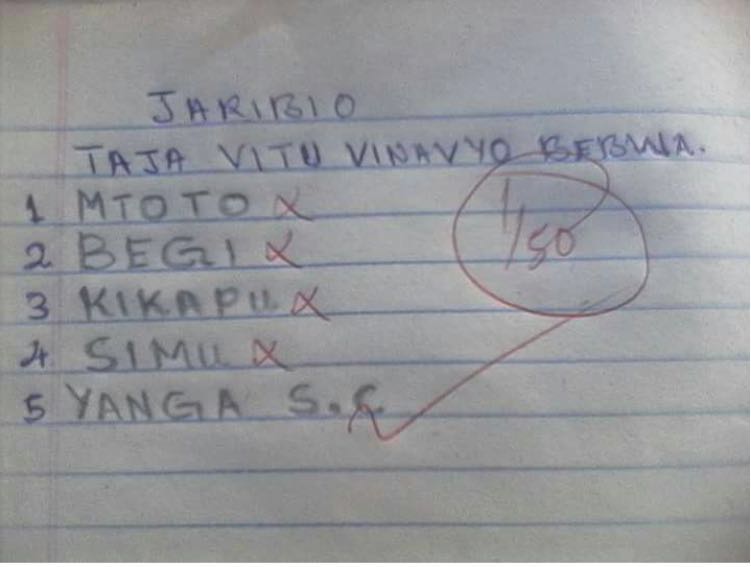 JARIBIO
TAJA VITU VINAVYO BEBWA.
1 MTOTO X
2 BEGI X
3 KIKAPU X
4 SIMU X
5 YANGA S.C ✓
1/50